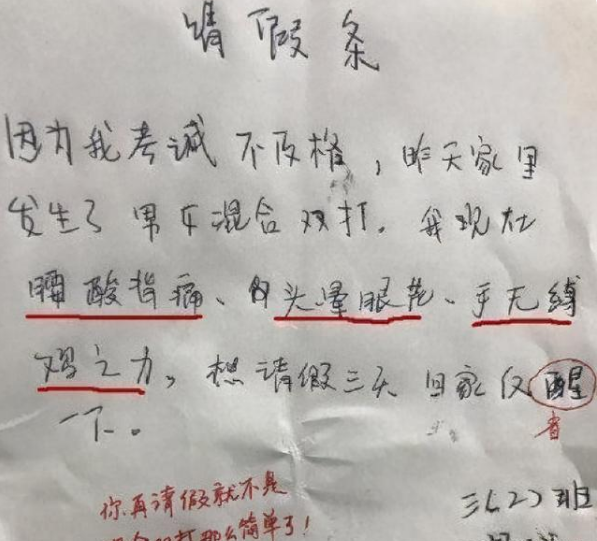 请假条
因为我考诚不及格，昨天家里
发生了男女混合双打。我现在
腰酸背痛、头晕眼花、手无缚
鸡之力，想请假三天回家仅醒
省
一下。
你再请假就不是
打那么简单了！
三（2）班